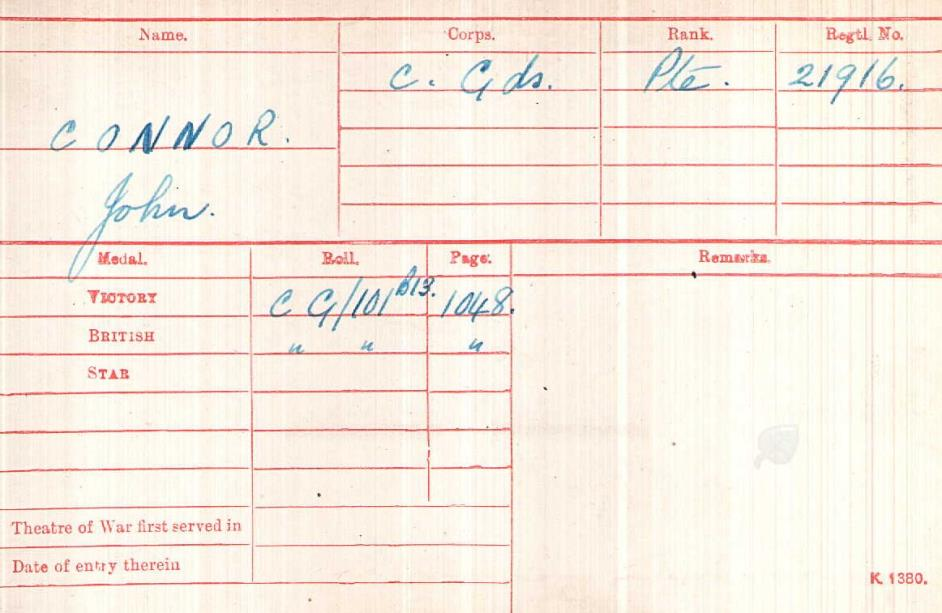 Name. Corps. Rank. Regtl. No.
C. Gds. Pte. 21916.
CONNOR.
John.
Medal. Roll. Page. Remarks.
VICTORY C G/101 B13. 1048.
BRITISH " " "
STAR
Theatre of War first served in
Date of entry therein
K. 1380.